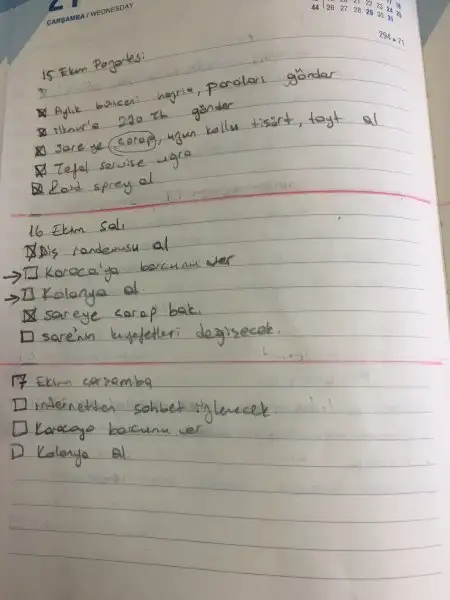 21
ÇARŞAMBA / WEDNESDAY
44 26 27 28 29 30 31
294 • 71
15 Ekim Pazartesi
Aylık bütçeni hazırla, paraları gönder
İlknur'a 220 TL gönder
Sare'ye çorap, uzun kollu tişört, tayt al
Tefal servise uğra
Raid sprey al
16 Ekim Salı
Diş randevusu al
→ Karaca'ya borcunu ver
→ Kolonya al
sareye çorap bak.
sare'nin kıyafetleri değişecek.
17 Ekim çarşamba
internetten sohbet
Karacaya borcunu ver
Kolonya al